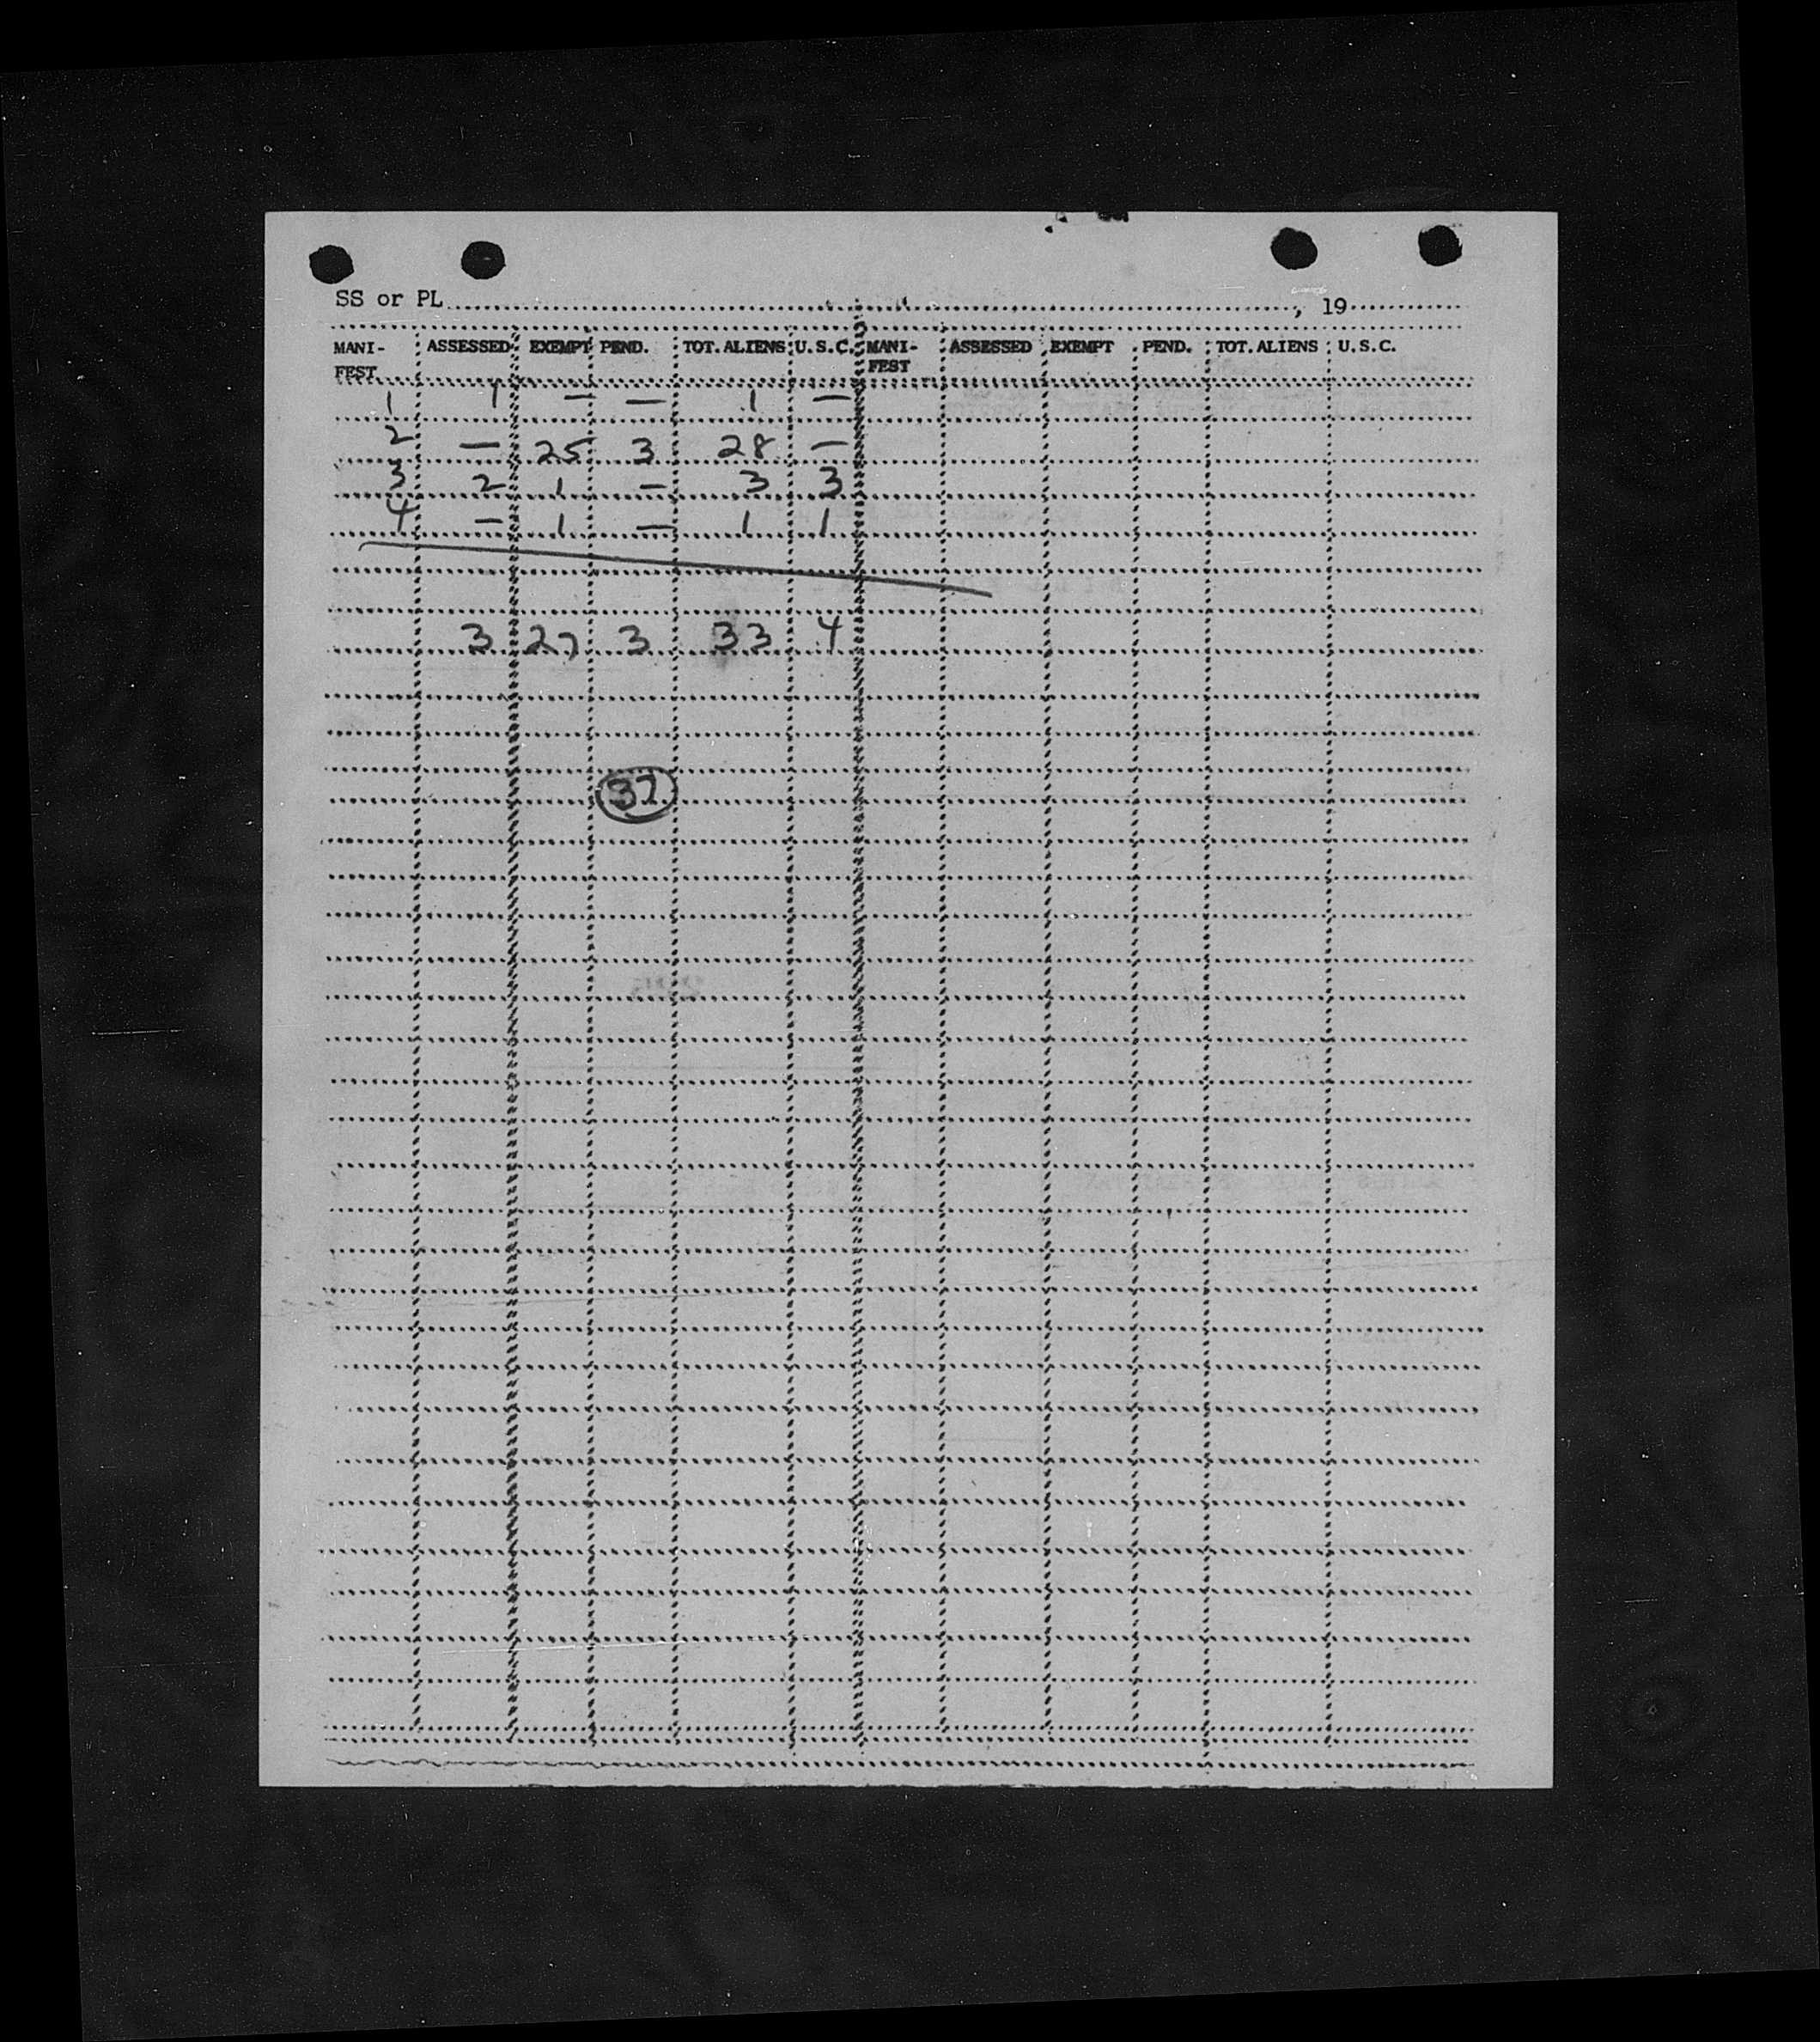 SS or PL , 19
MANI- ASSESSED EXEMPT PEND. TOT. ALIENS U.S.C. MANI- ASSESSED EXEMPT PEND. TOT. ALIENS U.S.C.
FEST FEST
1 1 — — 1 —
2 — 25 3 28 —
3 2 1 — 3 3
4 — 1 — 1 1
3 27 3 33 4
37